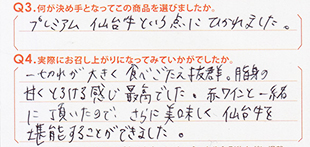 Q3.何が決め手となってこの商品を選びましたか。
プレミアム 仙台牛という点にひかれました。
Q4.実際にお召し上がりになってみていかがでしたか。
一切れが大きく食べごたえ抜群。脂身の
甘くとろける感じ最高でした。赤ワインと一緒
に頂いたので、さらに美味しく仙台牛を
堪能することができました。